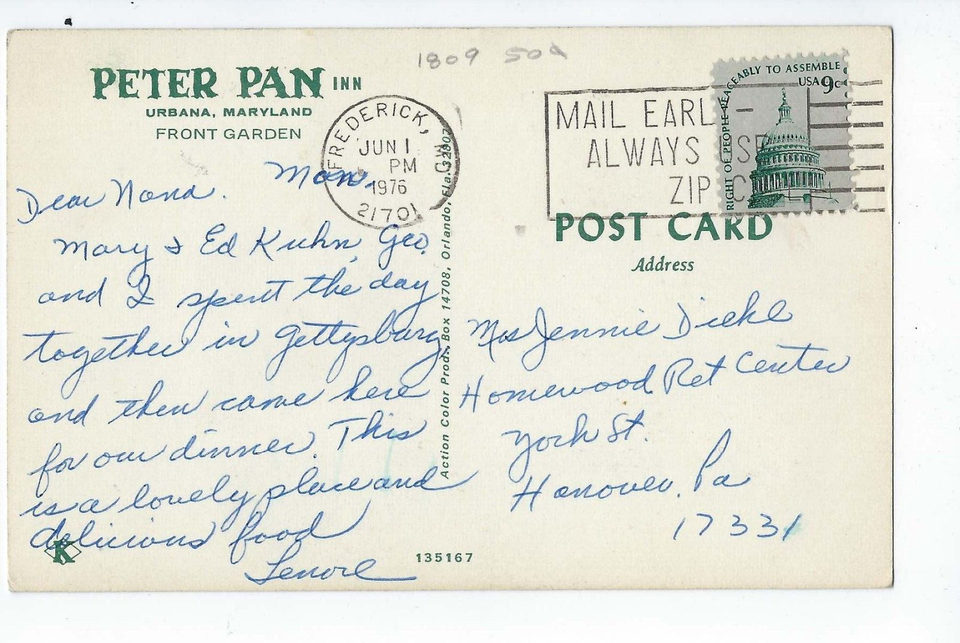 1809 50¢
PETER PAN INN
URBANA, MARYLAND
FRONT GARDEN
FREDERICK, MD
JUN 1
PM
1976
21701
MAIL EARLY -
ALWAYS USE
ZIP C
RIGHT OF PEOPLE PEACEABLY TO ASSEMBLE
USA 9c
POST CARD
Address
Mon.
Dear Nana.
Mary & Ed Kuhn, Geo.
and I spent the day
together in Gettysburg
and then came here
for our dinner. This
is a lovely place and
delicious food
Lenore
K
Action Color Prod., Box 14708, Orlando, Fla. 32807
Mrs Jennie Diehl
Homewood Ret Center
York St.
Hanover, Pa
17331
135167